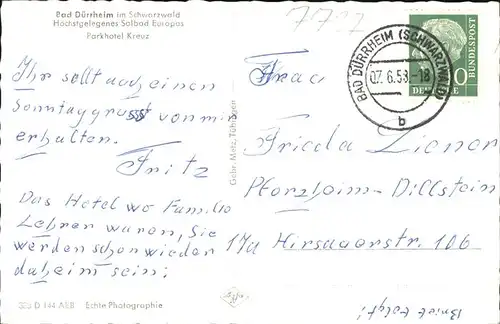 Bad Dürrheim im Schwarzwald
Höchstgelegenes Solbad Europas
Parkhotel Kreuz
Ihr sollt auch einen
Sonntaggruss von mir
erhalten.
Fritz
Das Hotel wo Familie
Lehrer waren, Sie
werden schon wieder
daheim sein.
D 144 AEB Echte Photographie
Gebr. Metz, Tübingen
7727
BAD DÜRRHEIM (SCHWARZWALD)
07.6.58-18
b
DEUTSCHE BUNDESPOST
10
Frau
Frieda Ziener
Pforzheim-Dillstein
17a Hirsauerstr. 106
Brief folgt!